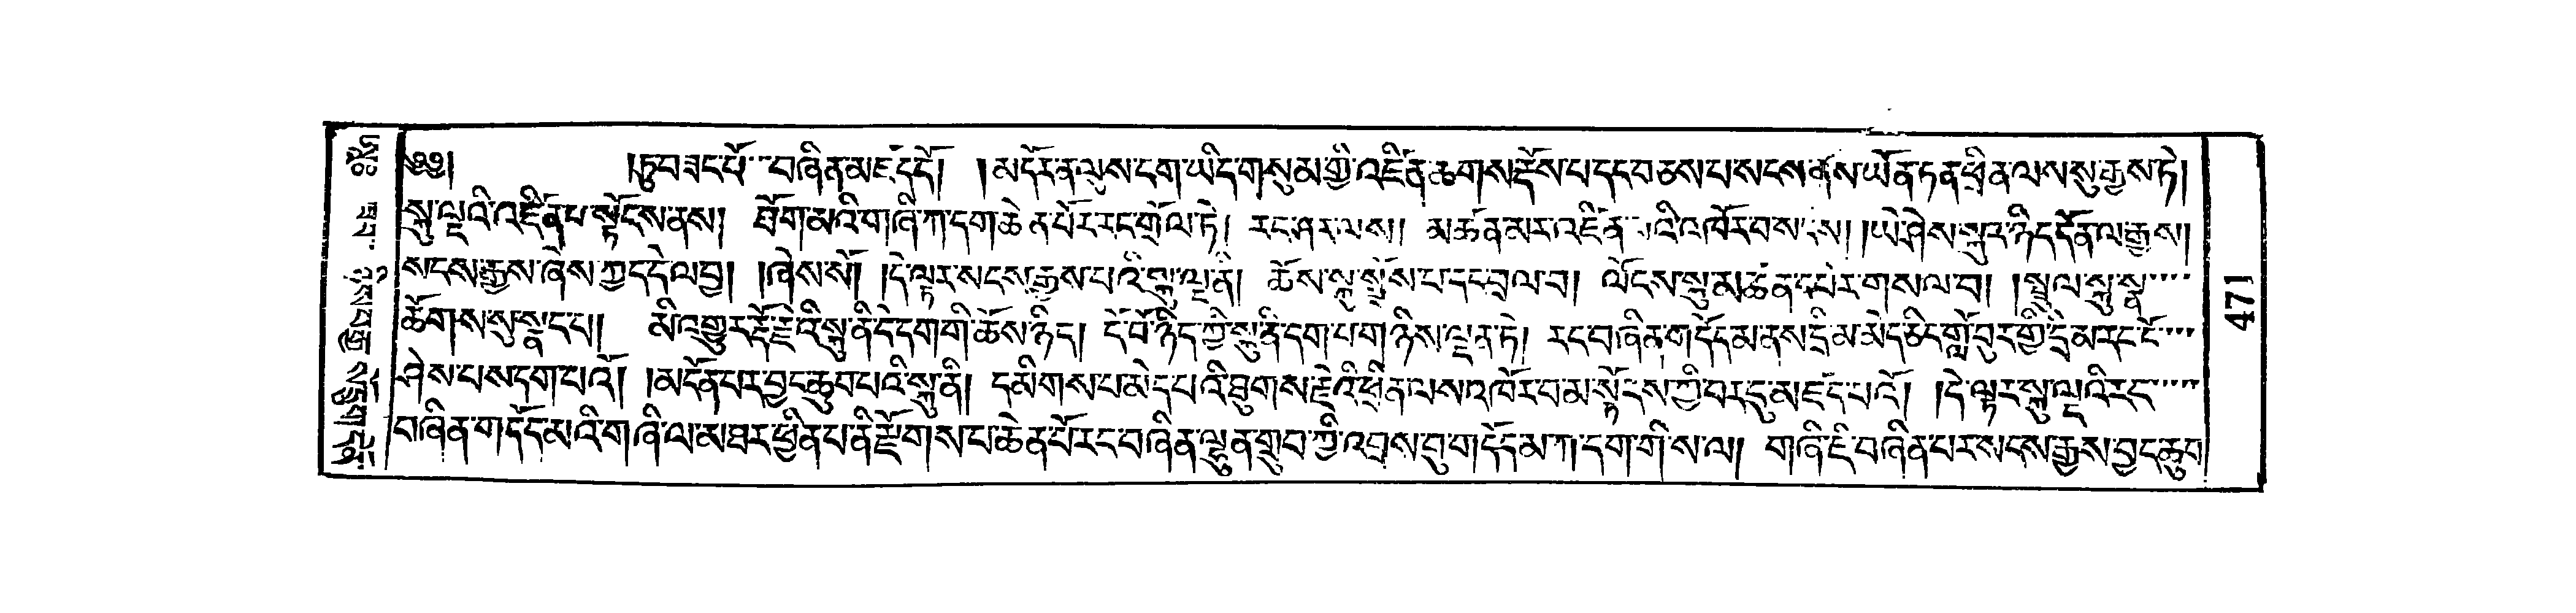 ༄༅། །ཏུ་བཟང་པོ་་་བཞིན་མཛད་དོ། །མདོར་ན་ལུས་ངག་ཡིད་གསུམ་གྱི་འཛིན་ཆགས་རྡོས་པ་དང་བཅས་པ་སངས་ནས་ཡོན་ཏན་ཕྲིན་ལས་སུ་རྒྱས་ཏེ།
སྐུ་ལྔའི་འཛིན་པ་སྟོངས་ནས། ཐོག་མའི་གཞི་ཀ་དག་ཆེན་པོར་རང་གྲོལ་ཏེ། རང་ཤར་ལས། མཚན་མར་འཛིན་པའི་འཁོར་བས་ངས། །ཡེ་ཤེས་སྐུར་ཉིད་དོན་ལ་རྒྱས།
སངས་རྒྱས་ཞེས་ཀྱང་དེ་ལ་བྱ། །ཞེས་སོ། །དེ་ལྟར་སངས་རྒྱས་པའི་སྐུ་ལྔ་ནི། ཆོས་སྐུ་སྤྲོས་པ་དང་བྲལ་བ། ལོངས་སྐུ་མཚན་དཔེར་གསལ་བ། །སྤྲུལ་སྐུ་སྣ་་་་
ཚོགས་སུ་སྣང་བ། མི་འགྱུར་རྡོ་རྗེའི་སྐུ་ནི་དེ་དག་གི་ཆོས་ཉིད། ངོ་བོ་ཉིད་ཀྱི་སྐུ་ནི་དག་པ་གཉིས་ལྡན་ཏེ། རང་བཞིན་གདོད་མ་ནས་དྲི་མ་མེད་ཅིང་གློ་བུར་གྱི་དྲི་མ་རང་ངོ་་་་
ཤེས་པས་དག་པའོ། །མངོན་པར་བྱང་ཆུབ་པའི་སྐུ་ནི། དམིགས་པ་མེད་པའི་ཐུགས་རྗེའི་ཕྲིན་ལས་འཁོར་བ་མ་སྟོངས་ཀྱི་བར་དུ་མཛད་པའོ། །དེ་ལྟར་སྐུ་ལྔའི་རང་་་་་
བཞིན་གདོད་མའི་གཞི་ལ་མཐར་ཕྱིན་པ་ནི་རྫོགས་པ་ཆེན་པོ་རང་བཞིན་ལྷུན་གྲུབ་ཀྱི་འབྲས་བུ་གདོད་མ་ཀ་དག་གི་ས་ལ། གཞི་ཇི་བཞིན་པར་སངས་རྒྱས་བྱང་ཆུབ
174